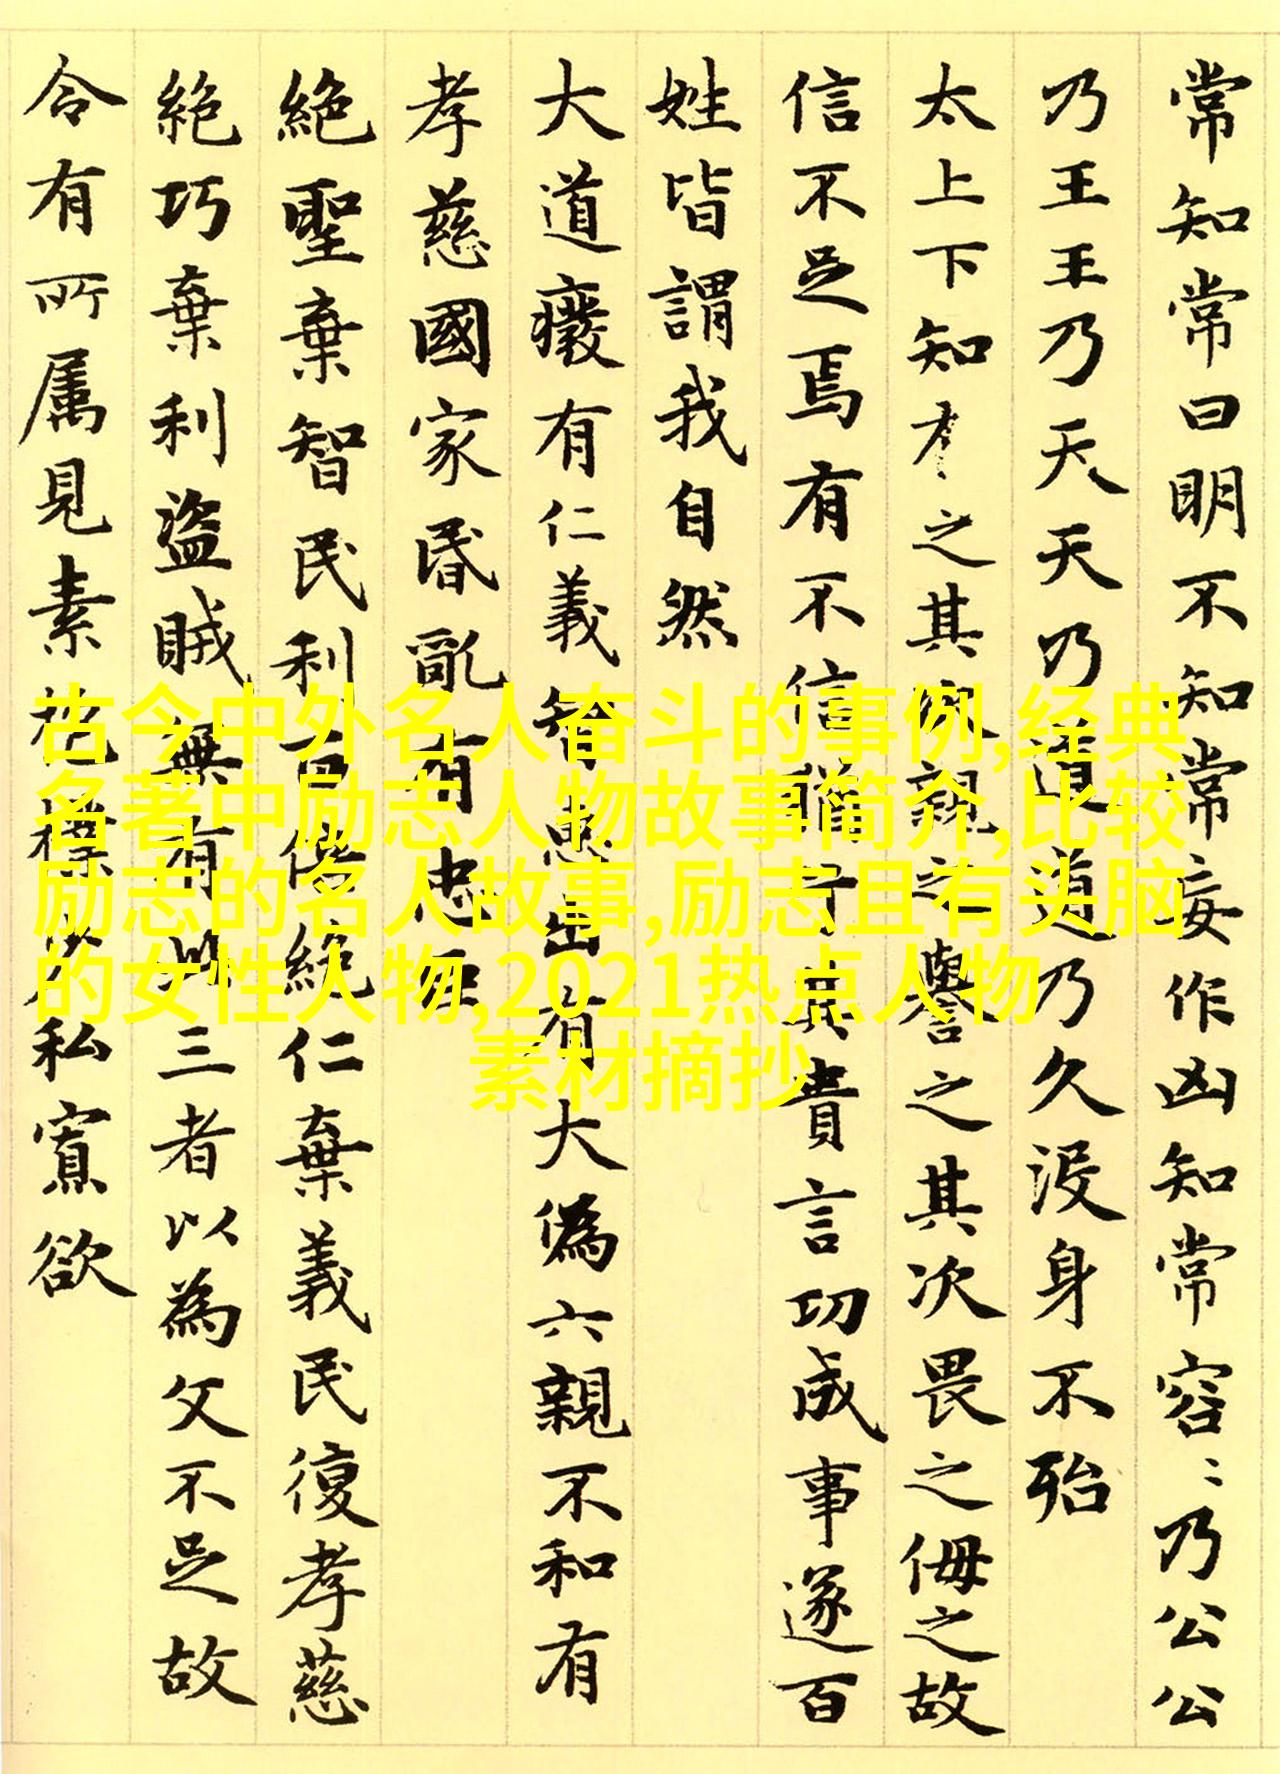 常知常曰明不知常妄作凶知常容〻乃公公
乃王王乃天天乃道道乃久没身不殆
太上下知有之其次親之譽之其次畏之侮之故
信不足焉有不信猶兮其貴言功成事遂百
姓皆謂我自然
大道癈有仁義智惠出有大偽六親不和有
孝慈國家昏亂有忠臣
絕聖棄智民利百倍絕仁棄義民復孝慈
絕巧棄利盜賊無有此三者以為文不足故
令有所属見素抱樸少私寡欲
古今中外名人奋斗的事例,经典
名著中励志人物故事简介,比较
励志的名人故事,励志且有头脑
的女性人物,2021热点人物
素材摘抄